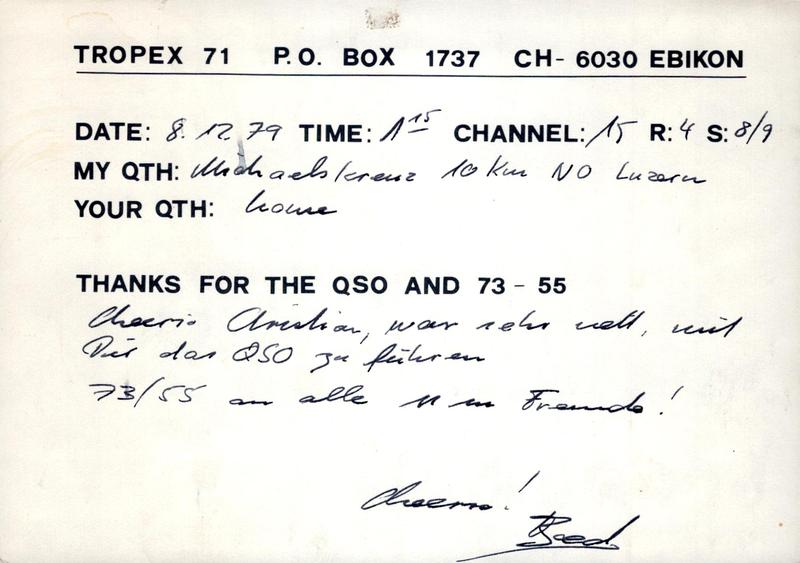 TROPEX 71 P.O. BOX 1737 CH- 6030 EBIKON
DATE: 8. 12. 79 TIME: 1 15 CHANNEL: 15 R: 4 S: 8/9
MY QTH: Michaelskreuz 10 Km NO Luzern
YOUR QTH: home
THANKS FOR THE QSO AND 73 - 55
Cheerio Christian, war sehr nett, mit
Dir das QSO zu führen
73/55 an alle 11 m Freunde!
Cheerio!